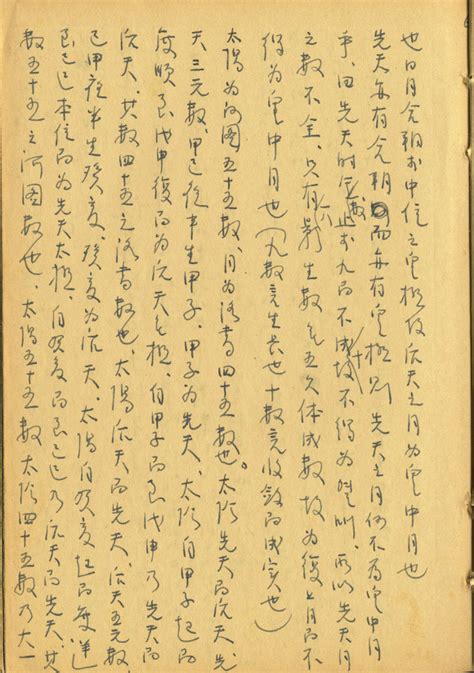 也日月合朔於中位之皇極故后天之月為皇中月也
先天無有合朔而無有皇極則先天之月何不為皇中月
乎曰先天時定數止於九而不成十故不得為 所以先天月
之數不全只有八 影生數乞五欠体成數故為復上月而不
得為皇中月也(九數竟生長也十數竟收斂而成實也)
太陽為河圖五十五數月為洛書四十五數也太陰先天而后天先
天三元數甲己後半生甲子甲子為先天太陰自甲子起而
度順至戊申復而為后天无極自甲子而至戊申乃先天而
后天其數四十五之洛書數也太陽后天而先天后天五元數
己甲夜半生癸亥癸亥為后天太陽自癸亥起而度逆
至己巳本位而為先天太極自癸亥而至己巳乃后天而先天其
數五十五之河圖數也太陽五十五數太陰四十五數乃大一